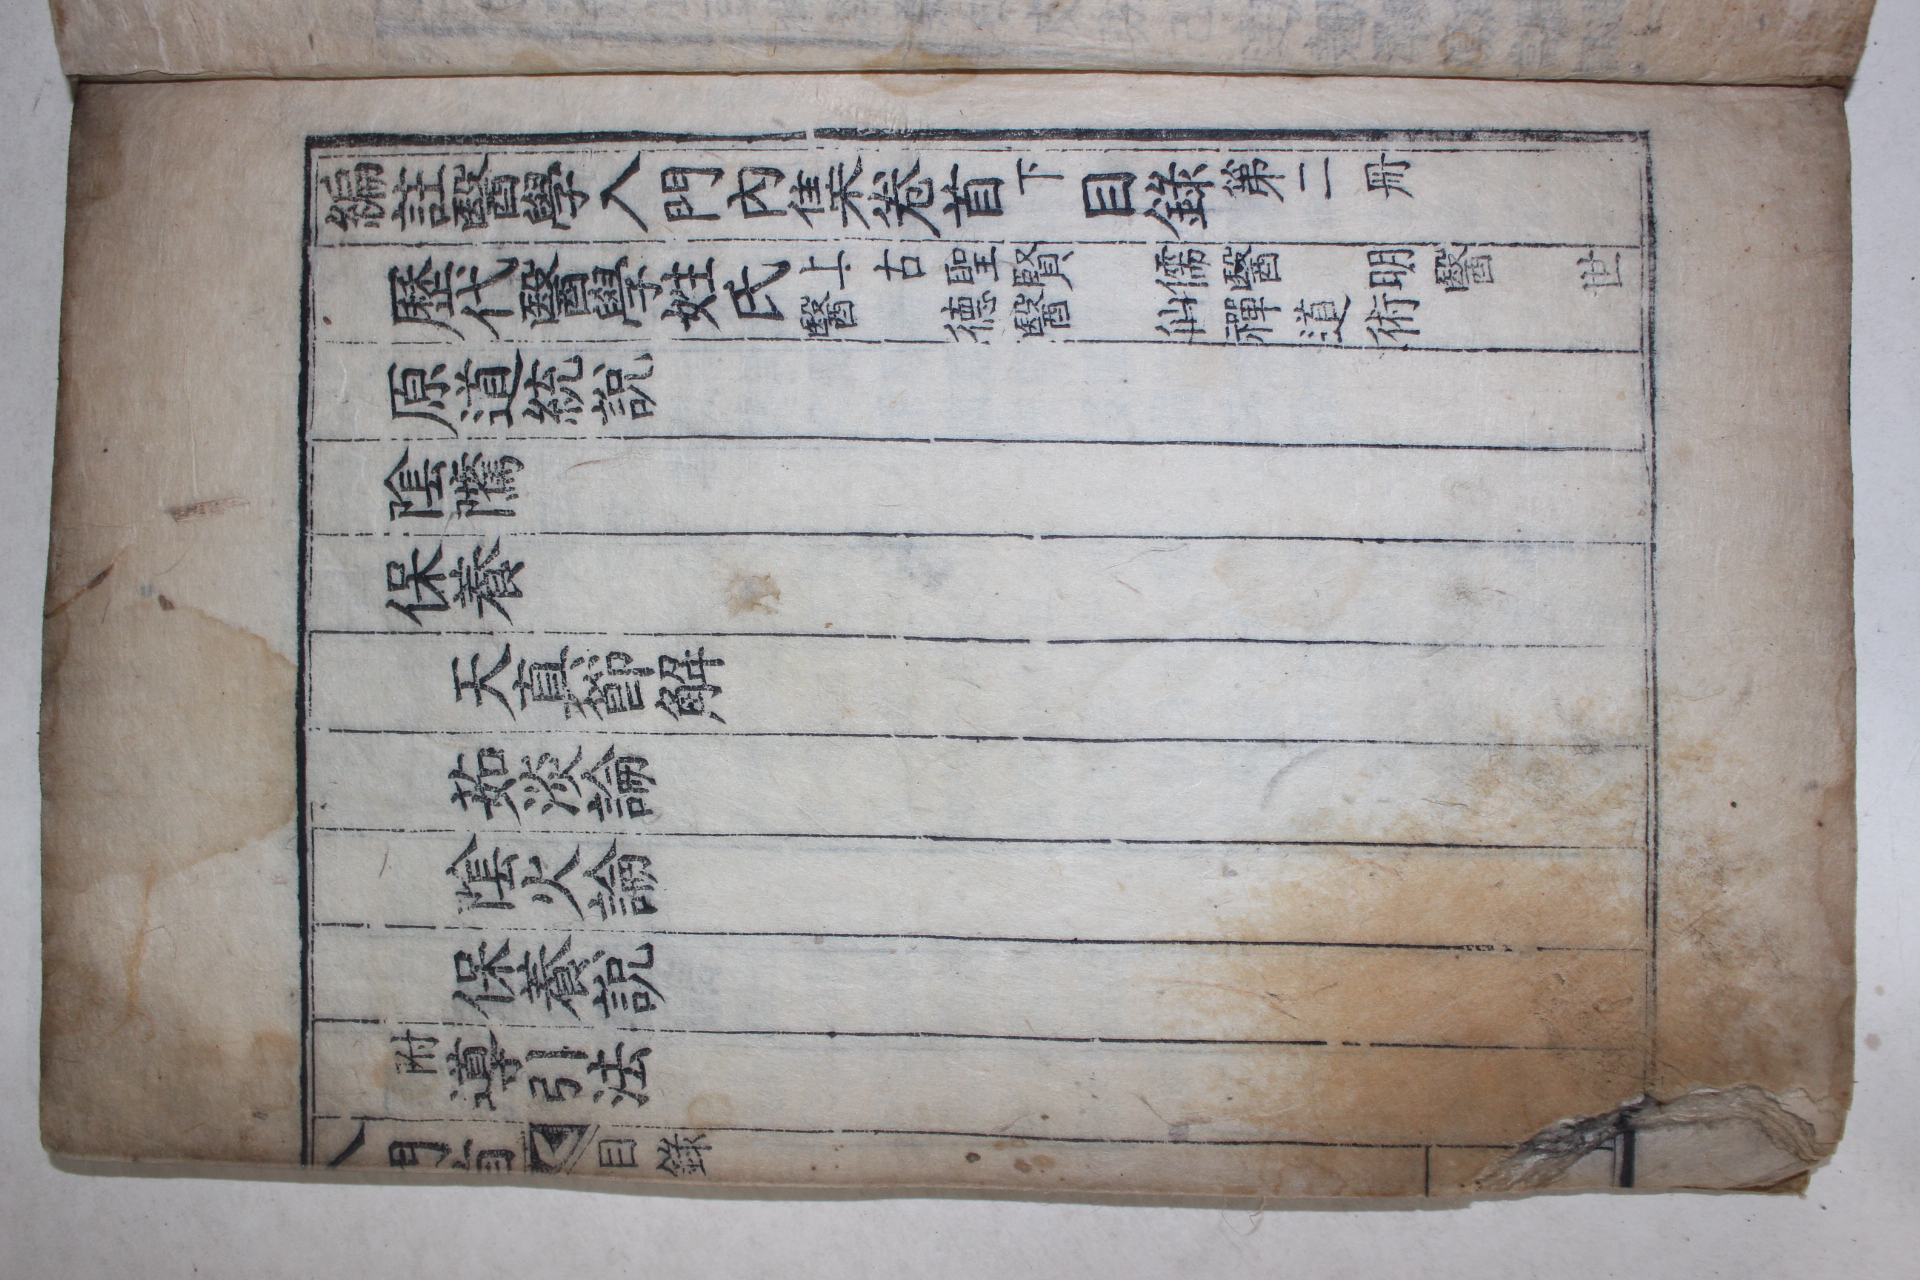 編註醫學入門內集卷首下目錄第二冊
歷代醫學姓氏 上古聖賢 儒醫 明醫 世
醫 德醫 仙禪道術
原道統說
陰隲
保養
天真節解
茹淡論
陰火論
保養說
附導引法
目錄